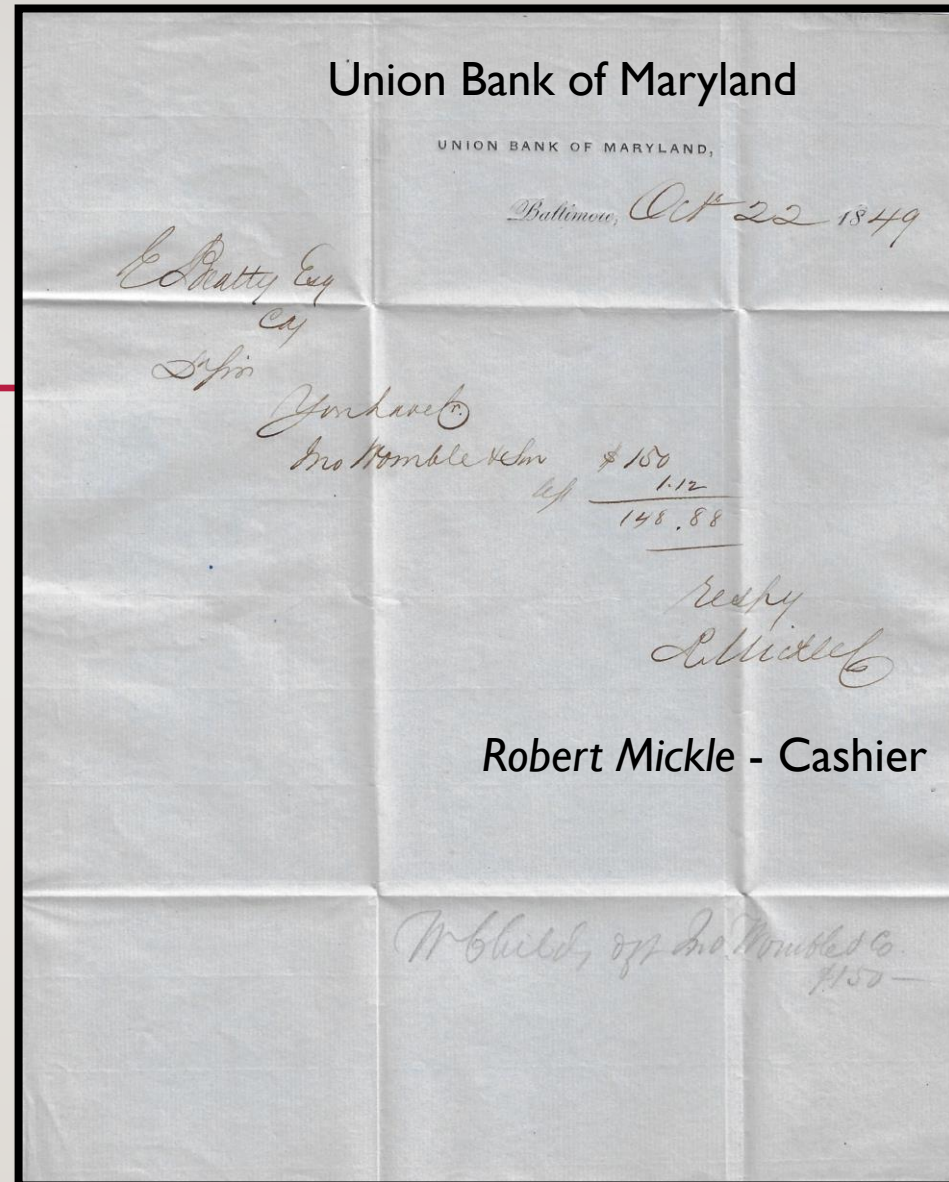 Union Bank of Maryland
UNION BANK OF MARYLAND,
Baltimore, Oct 22 1849
E Beatty Esq
Cas
Dr Sir
You have Cr.
Jno Womble & Son $150
1.12
148.88
Respy
R Mickle C
Robert Mickle - Cashier
W Childs Jno Womble & Co.
$150—